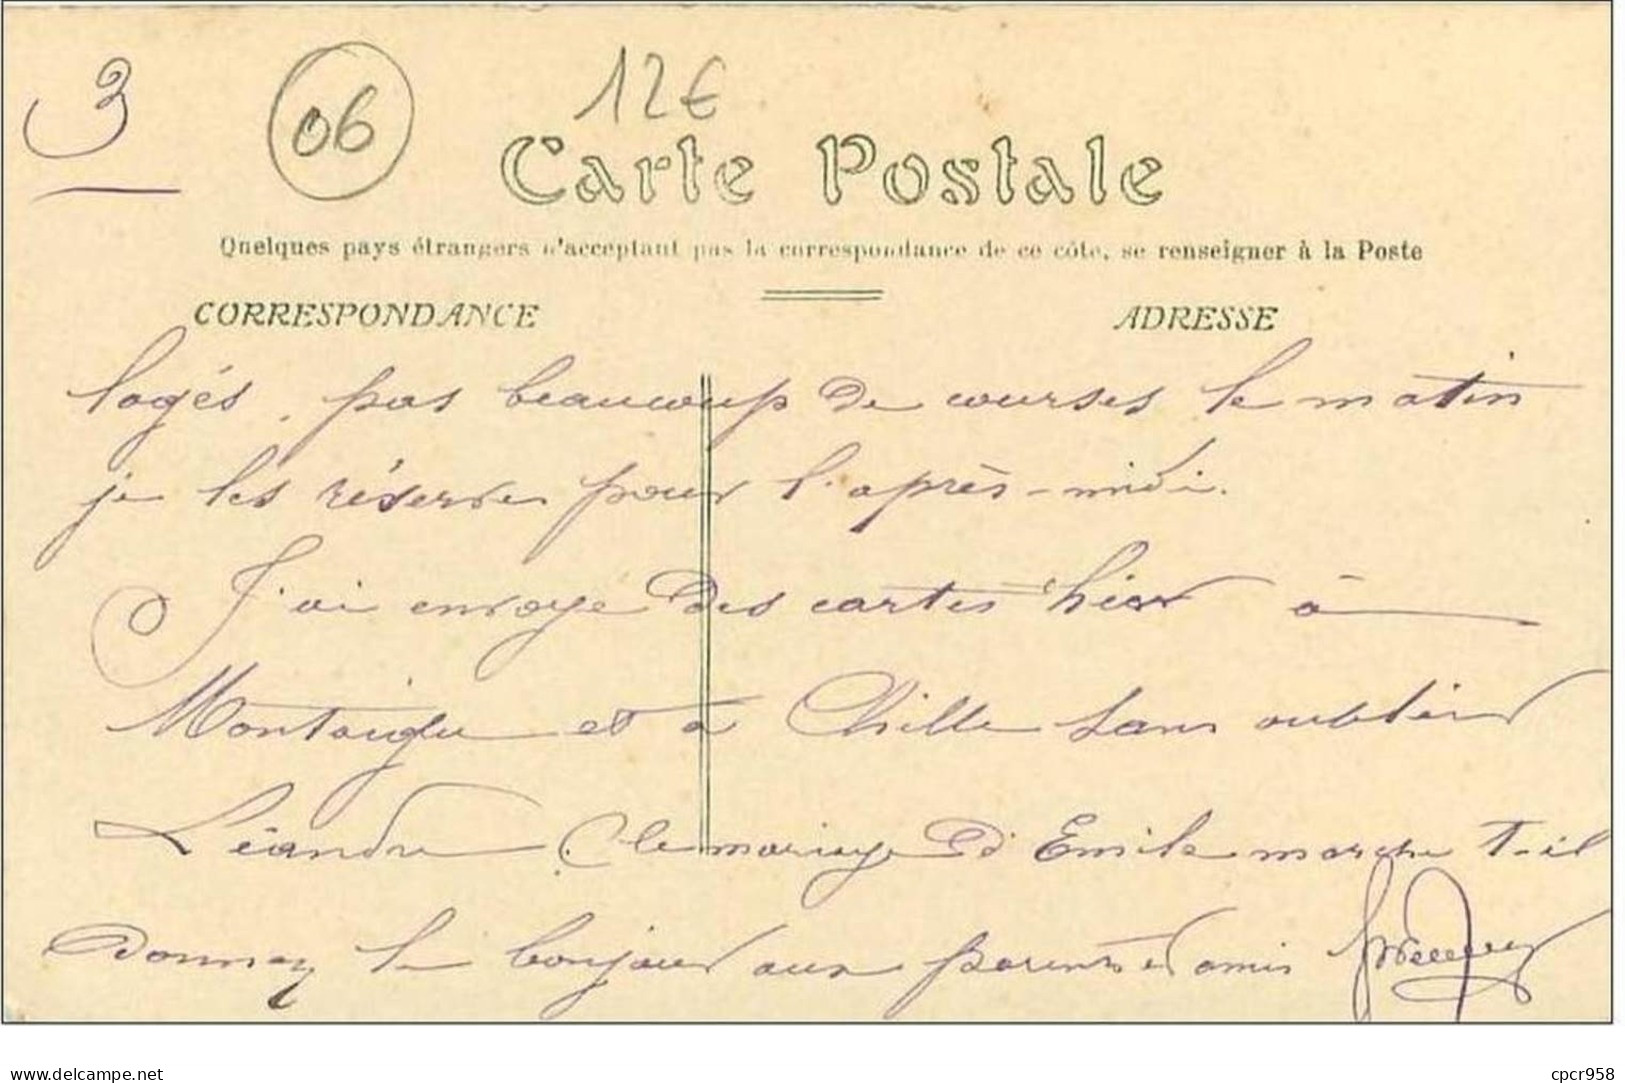 3
06
12€
Carte Postale
Quelques pays étrangers n'acceptant pas la correspondance de ce côté, se renseigner à la Poste
CORRESPONDANCE
ADRESSE
logés, pas beaucoup de courses le matin
je les réserve pour l'après-midi.
J'ai envoye des cartes hier à
Montaigu et à Chille sans oublier
Léandre (le mariage d'Emile marche t-il
Donnez le bonjour aux parents et amis
www.delcampe.net
cpcr958